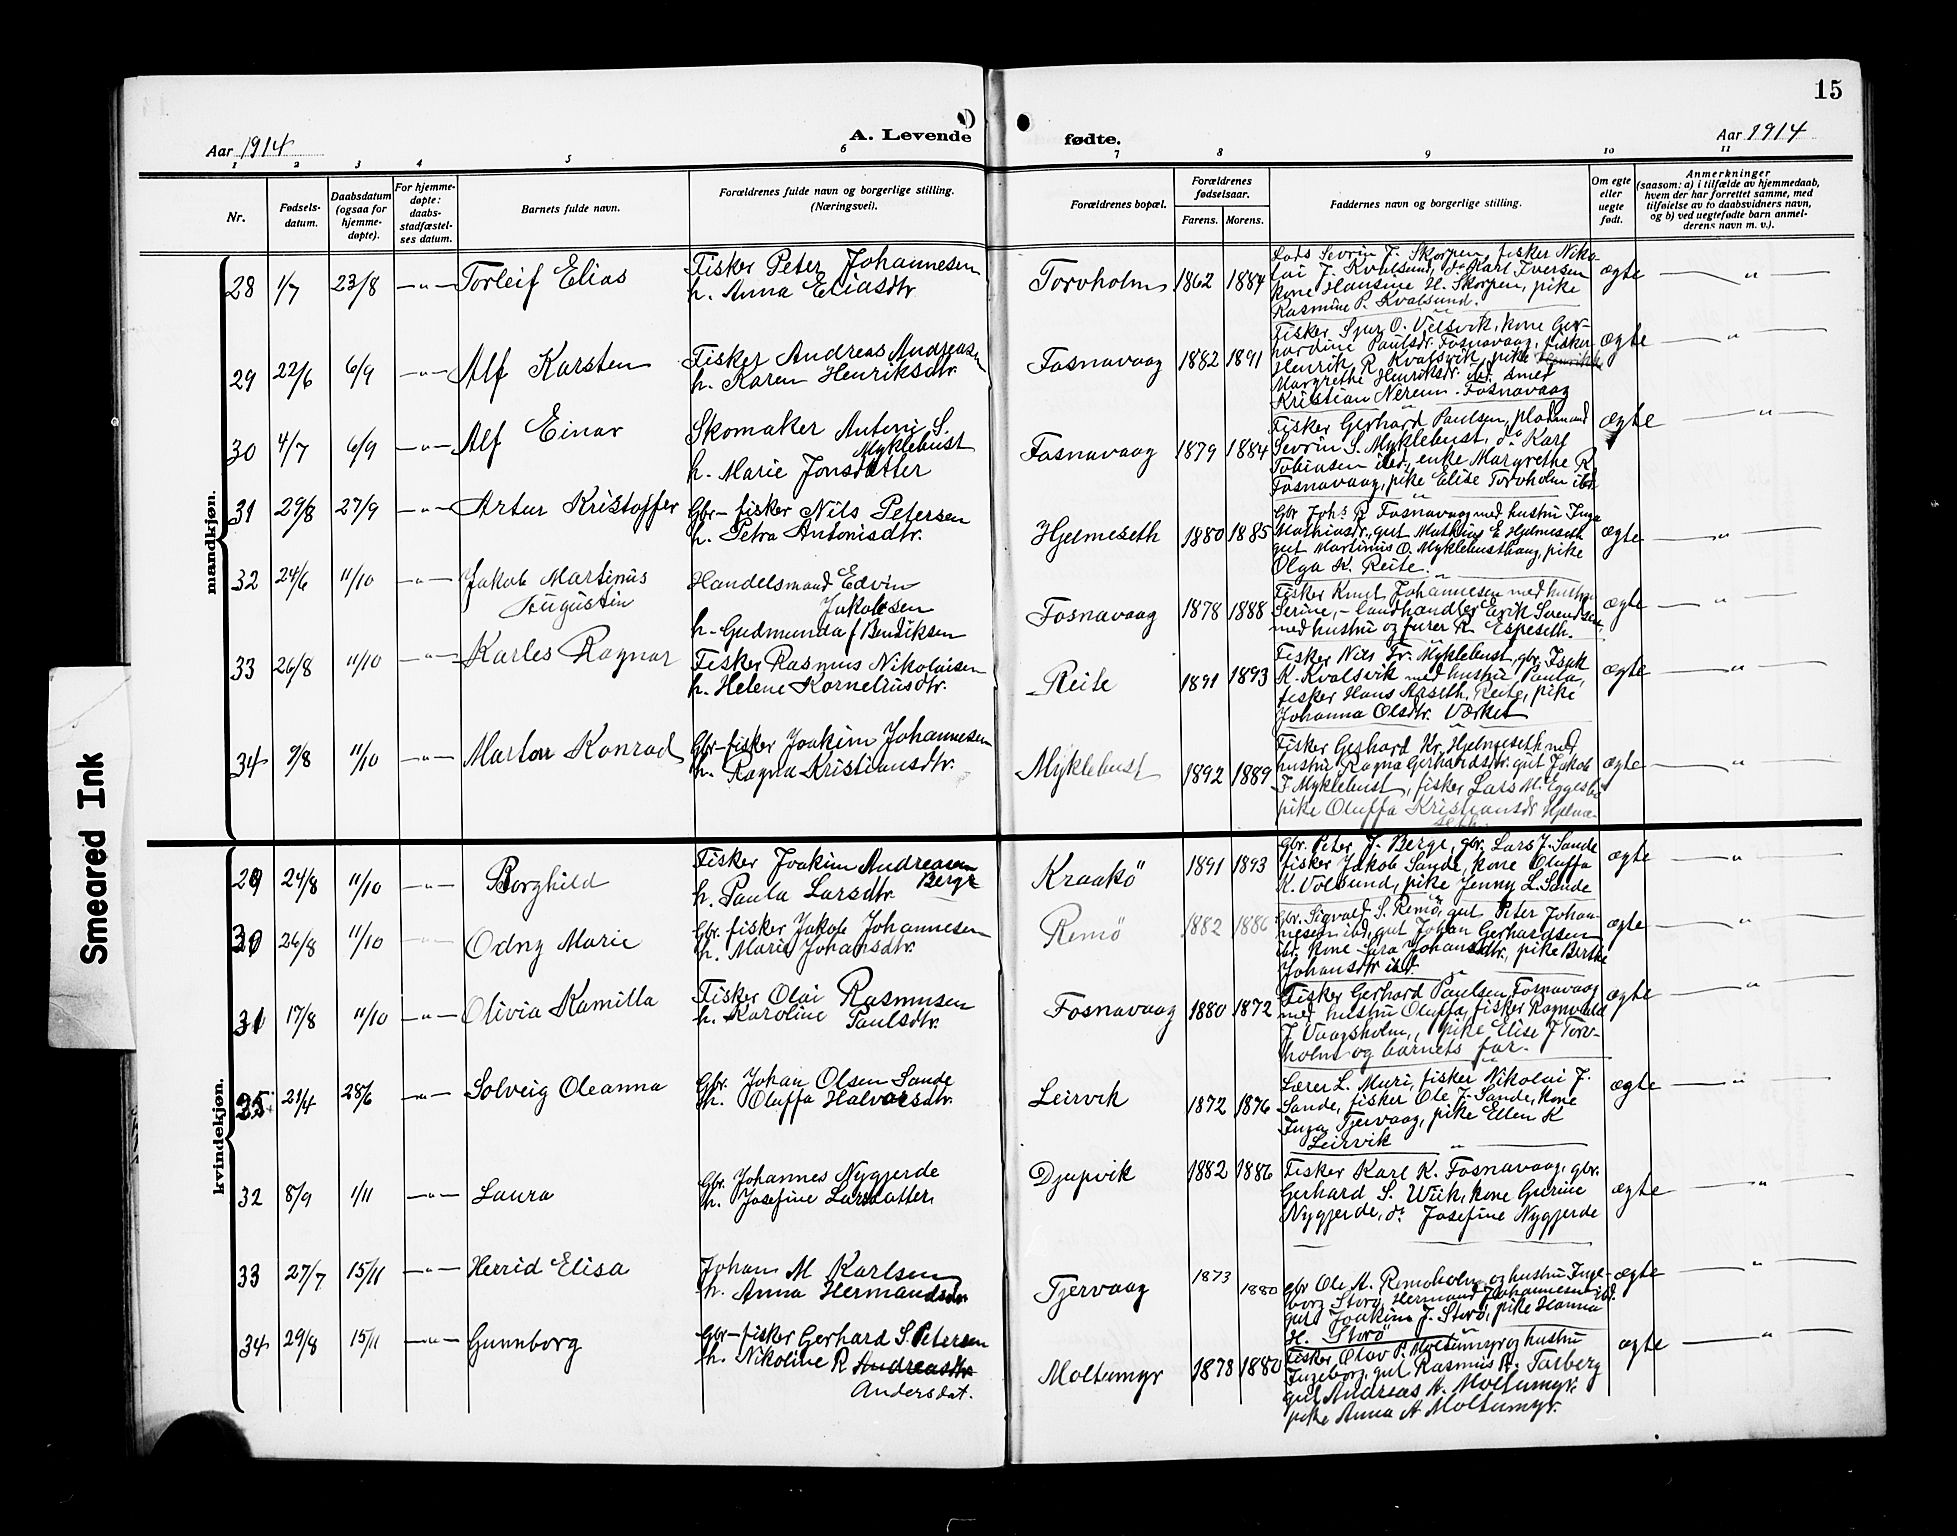 15
Aar 1914
A. Levende
fødte.
Aar 1914
1 2 3 4 5 6 7 8 9 10 11
Nr.
Fødsels-
datum.
Daabsdatum
(ogsaa for
hjemme-
døpte).
For hjemme-
døpte:
daabs-
stadfæstel-
ses datum.
Barnets fulde navn.
Forældrenes fulde navn og borgerlige stilling.
(Næringsvei).
Forældrenes bopæl.
Forældrenes
fødselsaar.
Farens. Morens.
Faddernes navn og borgerlige stilling.
Om egte
eller
uegte
født.
Anmerkninger
(saasom: a) i tilfælde av hjemmedaab,
hvem der har forrettet samme, med
tilføielse av to daabsvidners navn,
og b) ved uegtefødte barn anmel-
derens navn m. v.).
mandkjøn.
28 1/7 23/8 —"— Torleif Elias
Fisker Peter Johannesen
h. Anna Eliasdtr.
Torvholm 1862 1884
Lods Sevrin J. Skorpen, fisker Niko-
lai J. Kvalsund, do Karl Iversen
kone Hansine H. Skorpen, pike
Rasmine P. Kvalsund.
ægte —"—
29 22/6 6/9 —"— Alf Karsten
Fisker Andreas Andreasen
h. Karen Henriksdtr.
Fosnavaag 1882 1891
Fisker Sjur O. Velsvik, kone Ger-
hardine Paulsdr. Fosnavaag, fisker
Henrik R. Kvalsvik, pike
Margrethe Henriksdr. ibd. smed
Kristian Nerem. Fosnavaag
ægte —"—
30 4/7 6/9 —"— Alf Einar
Skomaker Antoni S.
Myklebust
h. Marie Jonsdatter
Fosnavaag 1879 1884
Fisker Gerhard Paulsen, pladsmand
Sevrin S. Myklebust, do Karl
Tobiasen ibd., enke Margrethe R.
Fosnavaag, pike Elise Torvholm ibd.
ægte —"—
31 29/8 27/9 —"— Artur Kristoffer
Gbr-fisker Nils Petersen
h. Petra Antonisdtr.
Hjelmeseth 1880 1885
Gbr Johs P. Fosnavaag med hustru Inga
Mathiasdr., gut Mathias E Hjelmeseth
gut Martinus O. Myklebusthaug, pike
Olga K. Reite.
ægte —"—
32 24/6 11/10 —"— Jakob Martinus
Augustin
Handelsmand Edvin
Jakobsen
h. Gudmunda f Bendiksen
Fosnavaag 1878 1888
Fisker Knut Johannesen med hustru
Serine, - landhandler Erik Svendsen
med hustru og furer R Espeseth.
ægte —"—
33 26/8 11/10 —"— Karles Ragnar
Fisker Rasmus Nikolaisen
h. Helene Korneliusdtr.
Reite 1891 1893
Fisker Nils Fr. Myklebust, gbr. Isak
K. Kvalsvik med hustru Paula,
fisker Hans Aaseth, Reite, pike
Johanna Olsdtr. Værket
ægte —"—
34 9/8 11/10 —"— Marton Konrad
Gbr-fisker Joakim Johannesen
h. Ragna Kristiansdtr.
Myklebust 1892 1889
Fisker Gerhard Kr. Hjelmeseth med
hustru Ragna Gerhardsdtr. gut Jakob
J Myklebust, fisker Lars M. Eggesbø
pike Oluffa Kristiansdr Hjelme-
seth.
ægte —"—
kvindekjøn.
29 24/8 11/10 —"— Borghild
Fisker Joakim Andreasen
Berge
h. Paula Larsdtr.
Kraakö 1891 1893
Gbr. Peter J. Berge, gbr. Lars J. Sande
fisker Jakob Sande, kone Oluffa
K. Volsund, pike Jenny L. Sande
ægte —"—
30 26/8 11/10 —"— Odny Marie
Gbr. fisker Jakob Johannesen
h. Marie Johansdtr.
Remö 1882 1886
Gbr. Sigvald S. Remö, gut Peter Johan-
nesen ibd, gut Johan Gerhardsen
ibd. kone Sara Johansdtr., pike Berthe
Johansdtr ibd.
ægte —"—
31 17/8 11/10 —"— Olivia Kamilla
Fisker Olai Rasmusen
h. Karoline Paulsdtr.
Fosnavaag 1880 1872
Fisker Gerhard Paulsen, Fosnavaag
med hustru Oluffa, fisker Ragnvald
J. Vaagsholm, pike Elise J Torv-
holm og barnets far.
ægte —"—
25 21/4 28/6 —"— Solveig Oleanna
Gbr. Johan Olsen Sande
h. Oluffa Halvorsdtr.
Leirvik 1872 1876
Lærer L. Muri, fisker Nikolai J.
Sande, fisker Ole J. Sande, kone
Inga Tjervaag, pike Ellen K
Leirvik
ægte —"—
32 8/9 1/11 —"— Laura
Gbr. Johannes Nygjerde
h. Josefine Larsdatter.
Djupvik 1882 1886
Fisker Karl K. Fosnavaag, gbr.
Gerhard S. Wiik, kone Gurine
Nygjerde, do Josefine Nygjerde
ægte —"—
33 27/7 15/11 —"— Herrid Elisa
Johan M Karlsen
h. Anna Hermandsdr.
Tjervaag 1873 1880
Gbr Ole A. Remöholm og hustru Inge-
borg Storö, Hermand Johannesen ibd.
gut Joakim J. Storö, pike Hanna
H. Storö
ægte —"—
34 29/8 15/11 —"— Gunnborg
Gbr-fisker Gerhard S. Petersen
h. Nikoline R Andreasdtr
Andersdat.
Moltumyr 1878 1880
Fisker Olav P. Moltumyr og hustru
Ingeborg, gut Rasmus R. Tarberg
gut Andreas A. Moltumyr.
pike Anna A Moltumyr.
ægte —"—
Smeared Ink